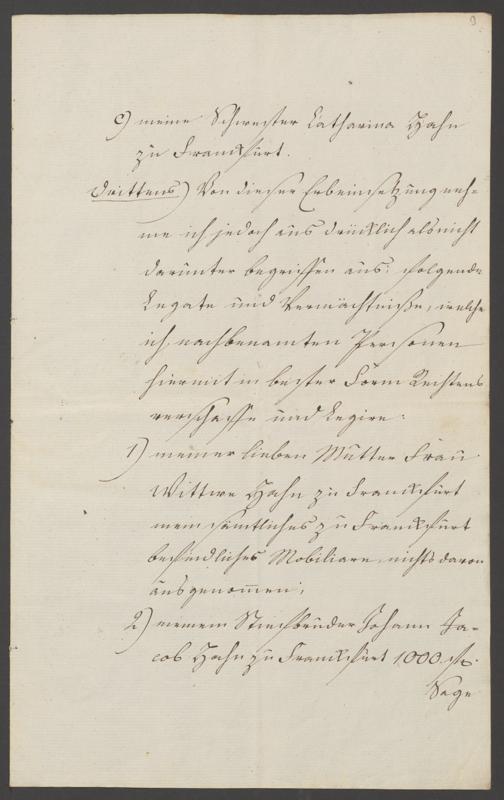 9
c) meine Schwester Catharina Hahn
zu Franckfurt.
Drittens) Von dieser Erbeinsetzung neh-
me ich jedoch aus drücklich als nicht
darunter begriffen aus: folgende
Legate und Vermächtniße, welche
ich nachbenamten Personen
hiermit in bester Form Rechtens
verschaffe und legire:
1) meiner lieben Mutter Frau
Wittwe Hahn zu Franckfurt
mein sämtliches zu Franckfurt
befindliches Mobiliare, nichts davon
ausgenommen;
2) meinem Stiefbruder Johann Ja-
cob Hahn zu Franckfurt 1000 f
Sage